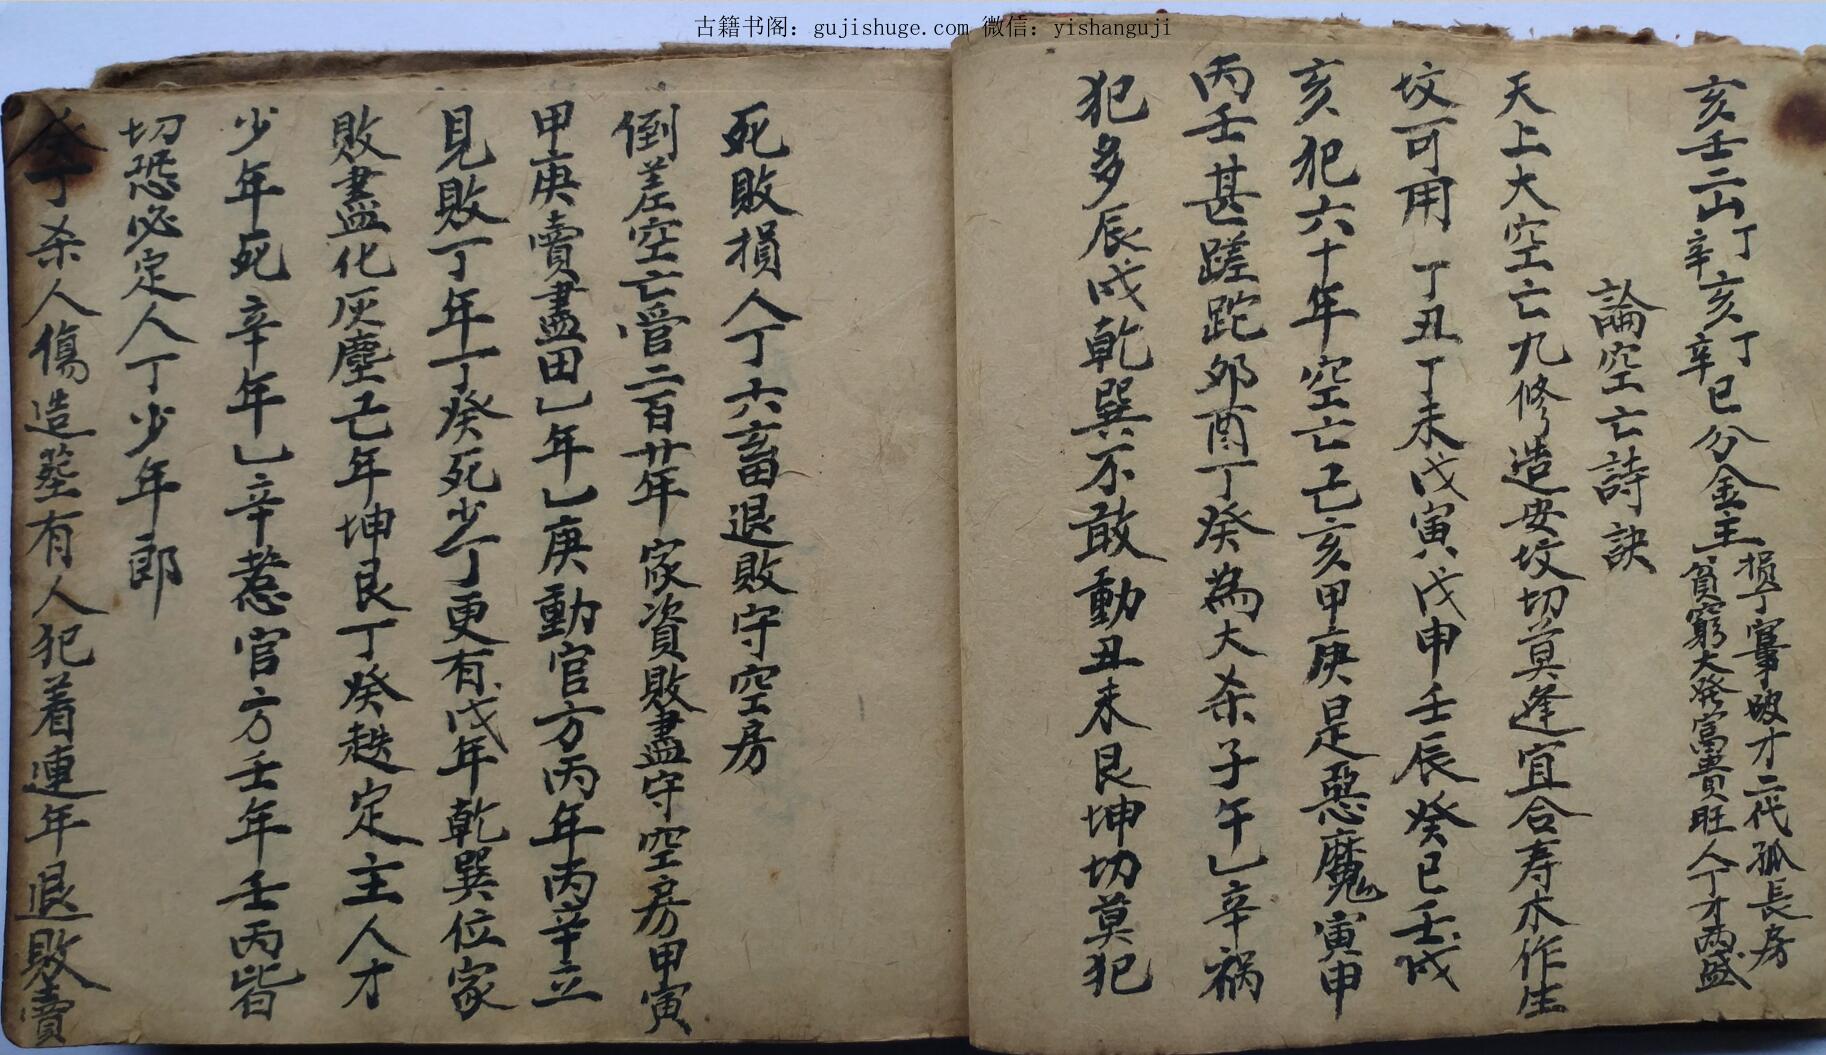 古籍书阁：gujishuge.com 微信：yishanguji
亥壬二山丁亥丁
辛辛巳分金主
損丁官事破才二代孤長房
貧窮大發富貴旺人丁才兩盛
論空亡詩訣
天上大空亡九修造安坟切莫逢宜合寿木作生
坟可用丁丑丁未戊寅戊申壬辰癸巳壬戌
亥犯六十年空亡己亥甲庚是惡魔寅申
丙壬甚蹉跎夘酉丁癸為大杀子午乚辛禍
犯多辰戌乾巽不敢動丑未艮坤切莫犯
死敗損人丁六畜退敗守空房
倒差空亡管二百廿年家資敗盡守空房甲寅
甲庚賣盡田乚年乚庚動官方丙年丙辛立
見敗丁年丁癸死少丁更有戊年乾巽位家
敗盡化灰塵己年坤艮丁癸趂定主人才
少年死辛年乚辛惹官方壬年壬丙皆
切恐必定人丁少年郎
丁杀人傷造塟有人犯着連年退敗賣